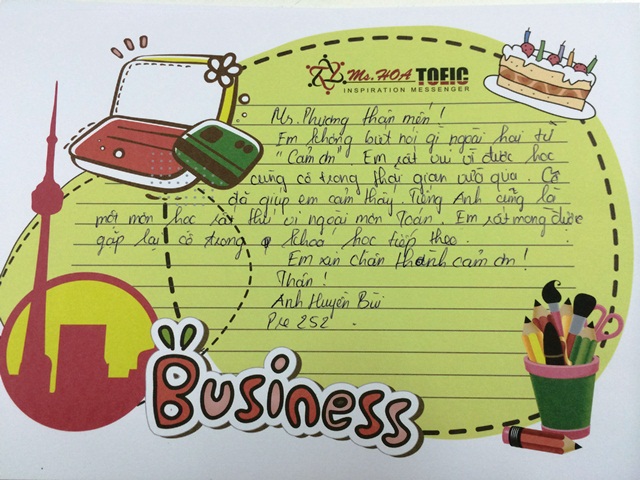 Ms. HOA TOEIC
INSPIRATION MESSENGER
Ms. Phương thân mến!
Em không biết nói gì ngoài hai từ
"Cảm ơn". Em rất vui vì được học
cùng cô trong thời gian vừa qua. Cô
đã giúp em cảm thấy Tiếng Anh cũng là
một môn học rất thú vị ngoài môn Toán. Em rất mong được
gặp lại cô trong khoá học tiếp theo.
Em xin chân thành cảm ơn!
Thân!
Anh Huyền Bùi
Pre 252.
Business